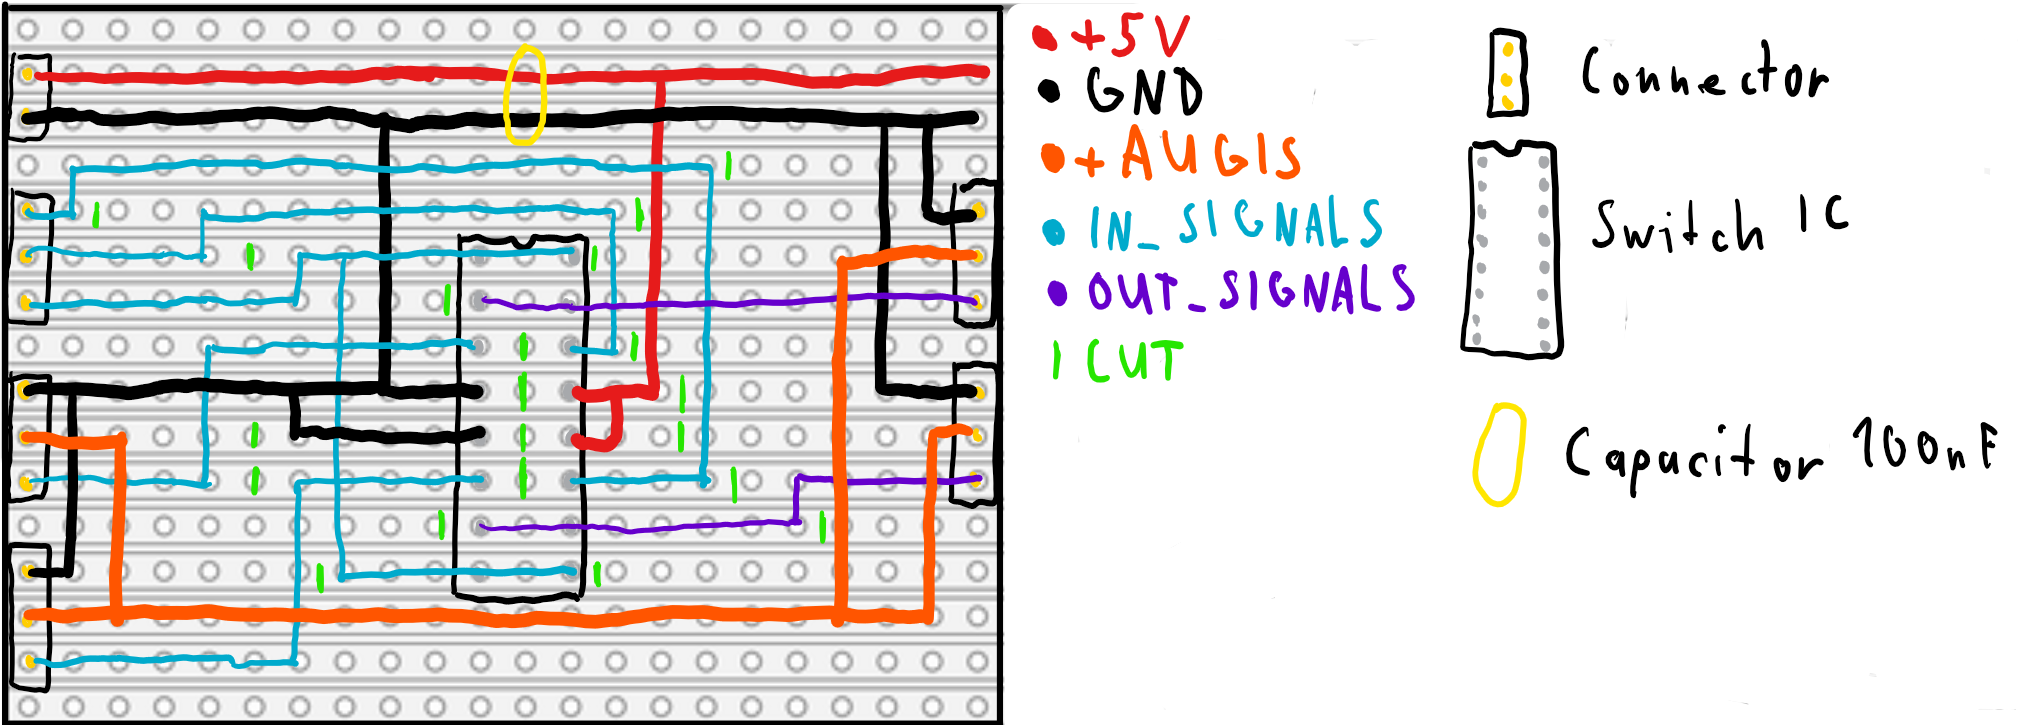 +5V
GND
+AUGIS
IN_SIGNALS
OUT_SIGNALS
CUT
Connector
Switch IC
Capacitor 100nF